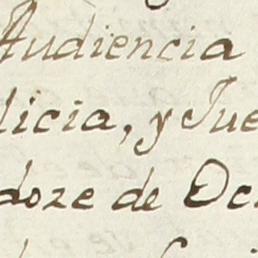 Audiencia
licia, y Jue
doze de Oc